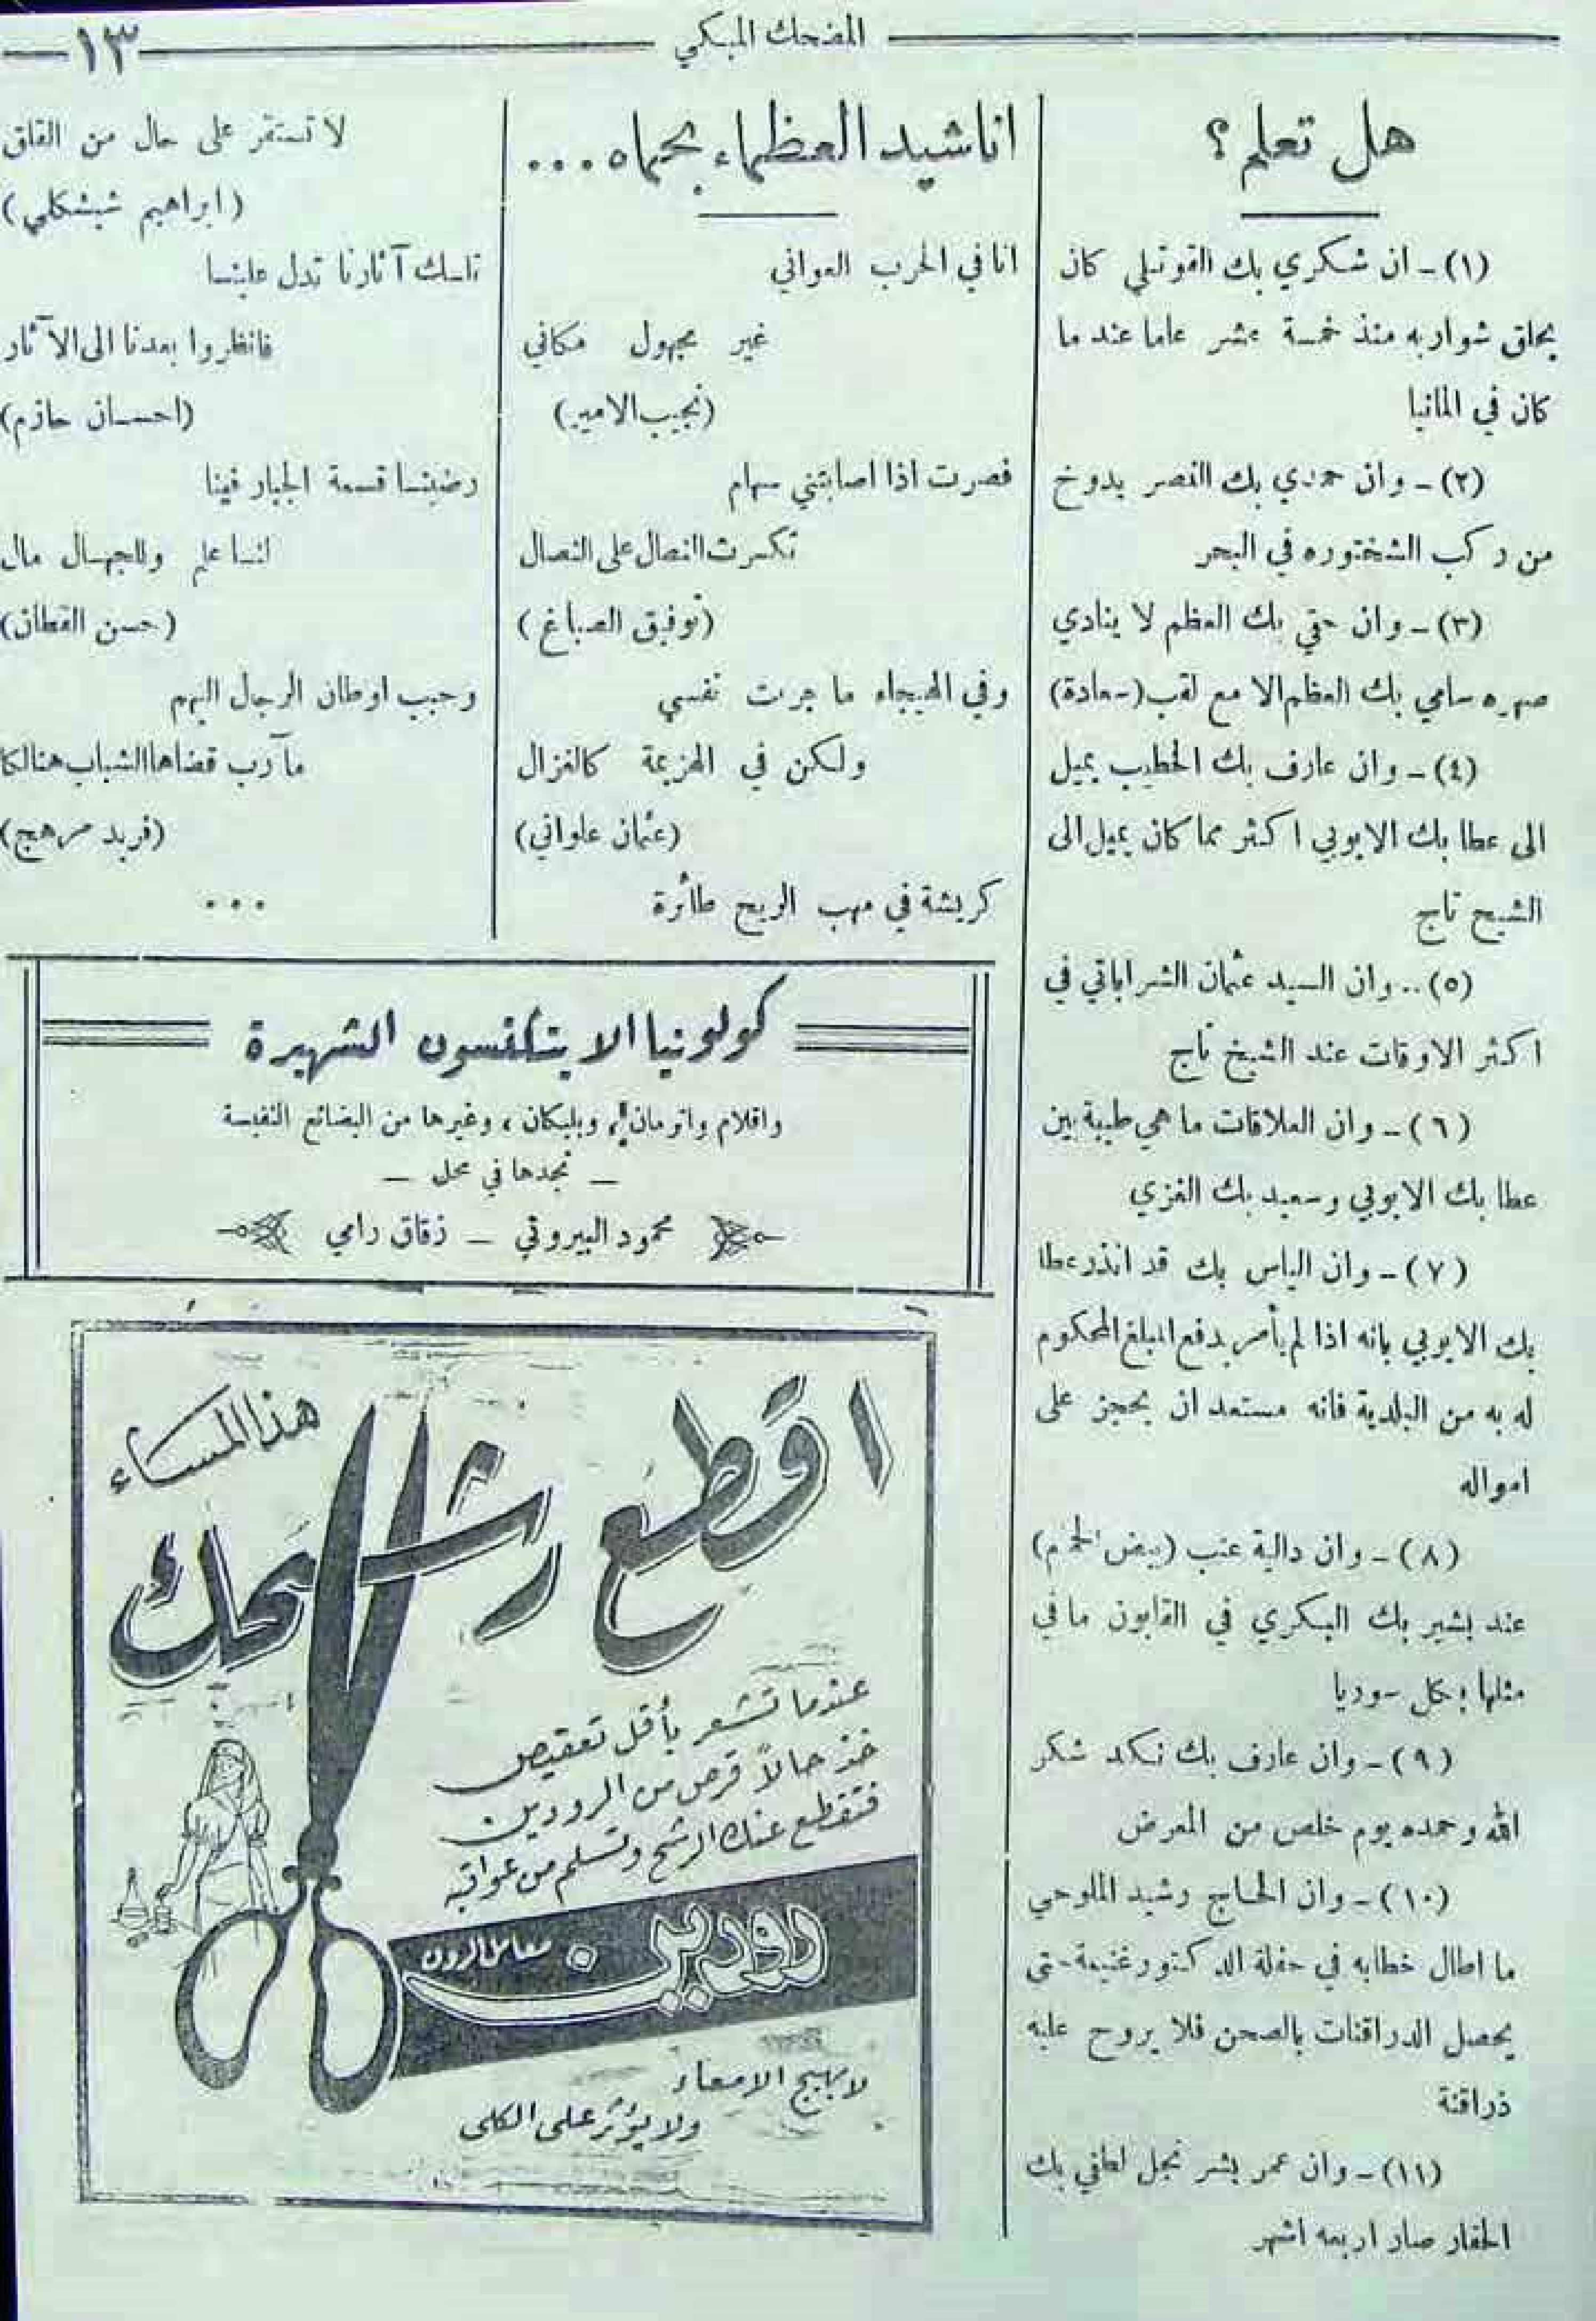 المضحك المبكي
١٣
هل تعلم؟
(١) - ان شكري بك القوتلي كان
يحلق شواربه منذ خمسة عشر عاما عند ما
كان في المانيا
(٢) - وان حمدي بك النصر يدوخ
من ركب الشختوره في البحر
(٣) - وان حقي بك العظم لا ينادي
صهره سامي بك العظم الا مع لقب (سعادة)
(٤) - وان عارف بك الخطيب يميل
الى عطا بك الايوبي اكثر مما كان يميل الى
الشيخ تاج
(٥) .. وان السيد عثمان الشراباتي في
اكثر الاوقات عند الشيخ تاج
(٦) - وان العلاقات ما هي طيبة بين
عطا بك الايوبي وسعيد بك الغزي
(٧) - وان الياس بك قد انذر عطا
بك الايوبي بانه اذا لم يأمر بدفع المبلغ المحكوم
له به من البلدية فانه مستعد ان يحجز على
امواله
(٨) - وان دالية عنب (بيض الحمام)
عند بشير بك البكري في القابون ما في
مثلها بكل سوريا
(٩) - وان عارف بك نكد شكر
الله وحمده يوم خلص من المعرض
(١٠) - وان الحاج رشيد الملوحي
ما اطال خطابه في حفلة الدكتور غنيمة حتى
يحصل الدراقنات بالصحن فلا يروح عليه
ذراقنة
(١١) - وان عمر بشر نجل لطفي بك
الحفار صار اربعه اشهر
اناشيد العظماء بحماه ...
انا في الحرب العواني
غير مجهول مكافي
(نجيب الامير)
فصرت اذا اصابتني سهام
تكسرت النصال على النصال
(توفيق الصباغ)
وفي الهيجاء ما جربت نفسي
ولكن في الهزيمة كالغزال
(عثمان علواني)
كريشة في مهب الريح طائرة
لا تستقر على حال من القلق
(ابراهيم شيشكلي)
تلك آثارنا تدل علينا
فانظروا بعدنا الى الآثار
(احسان حازم)
رضينا قسمة الجبار فينا
لنا علم وللجهال مال
(حسن القطان)
وحبب اوطان الرجال اليهم
مآرب قضاها الشباب هنالكا
(فريد مرهج)
...
كولونيا الاتكنسون الشهيرة
واقلام واترمان، وبليكان، وغيرها من البضائع النفيسة
- تجدها في محل -
محمود البيروتي - زقاق رامي
اقطع رشحك
هذا المساء
عندما تشعر بأقل تعقيص
خذ حالاً قرص من الرودين
فتقطع عنك الرشح وتسلم من عواقبه
رودين
معامل الرون
لا يهيج الامعاء
ولا يؤثر على الكلى